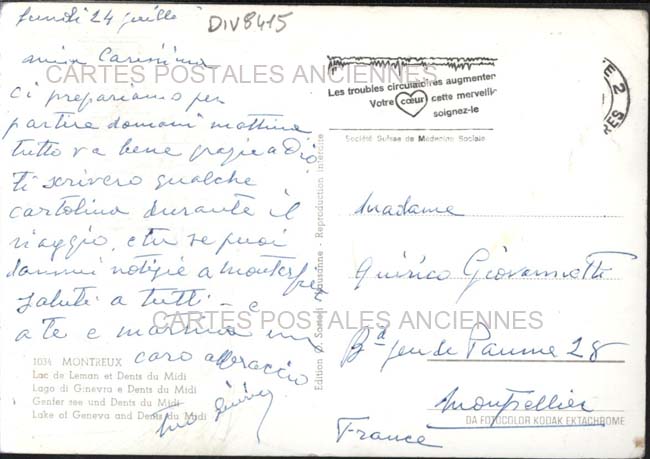 lunedi 24 giulio
DIV8415
mia Carissima
CARTES POSTALES ANCIENNES
ci prepariamo per
partire domani mattina
tutto va bene grazie a Dio
ti scrivero qualche
cartolina durante il
viaggio, e tu se puoi
dammi notizie a
saluti a tutti - e
a te e un
caro abbraccio
1034 MONTREUX
Lac de Leman et Dents du Midi
Lago di Ginevra e Dents du Midi
Genfer see und Dents du Midi
Lake of Geneva and Dents du Midi
Les troubles circulatoires augmentent
Votre cœur cette merveille
soignez-le
Société Suisse de Médecine Sociale
Lausanne - Reproduction interdite
Madame
Quirico
CARTES POSTALES ANCIENNES
Bd jeu de Paume 28
Montpellier
France
DA FOTOCOLOR KODAK EKTACHROME